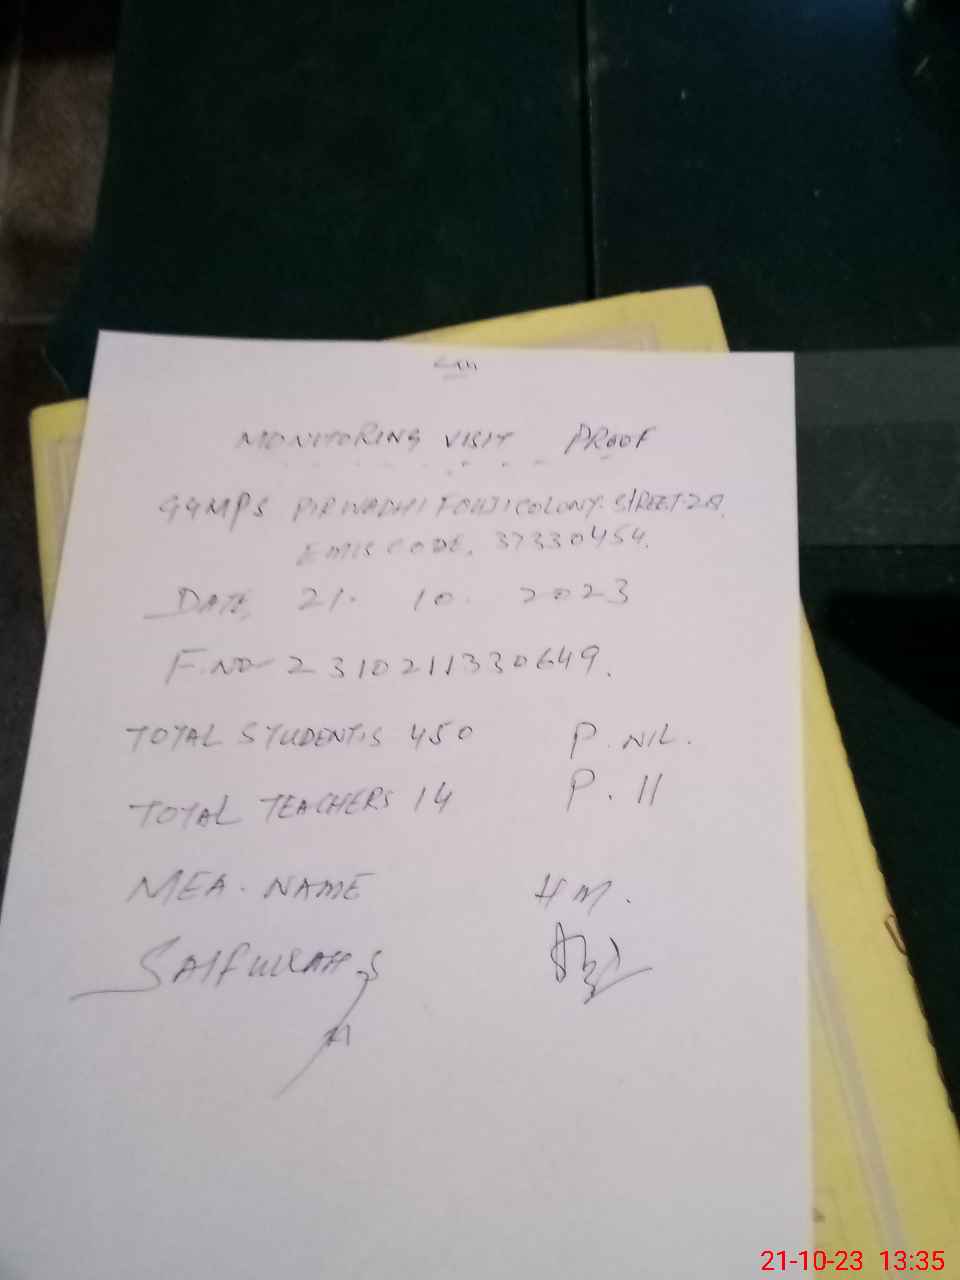 MONITORING VISIT PROOF
GGMPS PIRWADHI FOUJI COLONY. STREET-2A.
EMIS CODE. 37330454.
DATE. 21. 10. 2023
F.NO- 2310211330649.
TOTAL STUDENTS 450 P. NIL.
TOTAL TEACHERS 14 P. 11
MEA. NAME HM.
SAIFULLAH
21-10-23 13:35